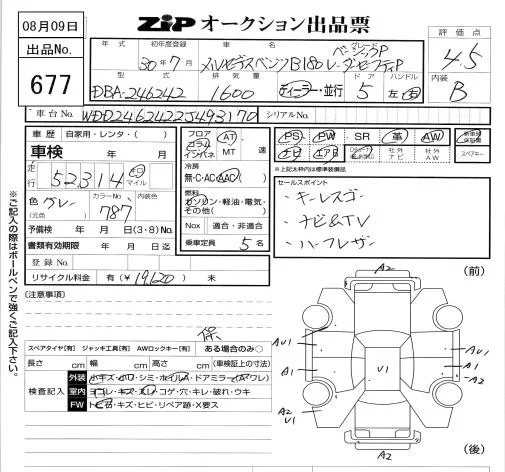 08月09日
ZIP オークション出品票
出品No.
677
評価点
4.5
内装
B
年式 初年度登録 車名 グレード
30年7月 メルセデスベンツB180 ベーシックP
レーダーセーフティP
型式 排気量 ドア ハンドル
DBA-246242 1600 ディーラー・並行 5 左 右
車台No. WDD2462422J493170 シリアルNo.
車歴 自家用・レンタ・( )
車検 年 月
走行 52314 キロ マイル
色 グレー カラーNo. 787 内装色
(元色)
予備検 年 月 日(3・8)No.
書類有効期限 年 月 日迄
登録No.
リサイクル料金 有(¥ 19,120) 未
フロア コラム インパネ
AT MT 速
冷房
無・C・AC・AAC・( )
燃料
ガソリン・軽油・電気・その他( )
Nox 適合・非適合
乗車定員 5 名
PS PW SR 革 AW 新車時保証書
エアB 社外ナビ 社外AW スペアキー
※上記太枠内は標準装備品
セールスポイント
・キーレスゴー
・ナビ&TV
・ハーフレザー
※ご記入の際はボールペンで強くご記入下さい。
(注意事項)
保
スペアタイヤ[有] ジャッキ工具[有] AWロックキー[有] ある場合のみ○
長さ cm 幅 cm 高さ cm (車検証上の寸法)
検査記入
外装 小キズ・小ワ・シミ・ホイルA・ドアミラー(A・ワレ)
室内 ヨゴレ・キズ・スレ・コゲ・穴・キレ・破れ・ウキ
FW トビ石・キズ・ヒビ・リペア跡・X要ス
(前)
A2
AU1
A1
A2
U1
AU1
A1
A2
U1
A2
(後)